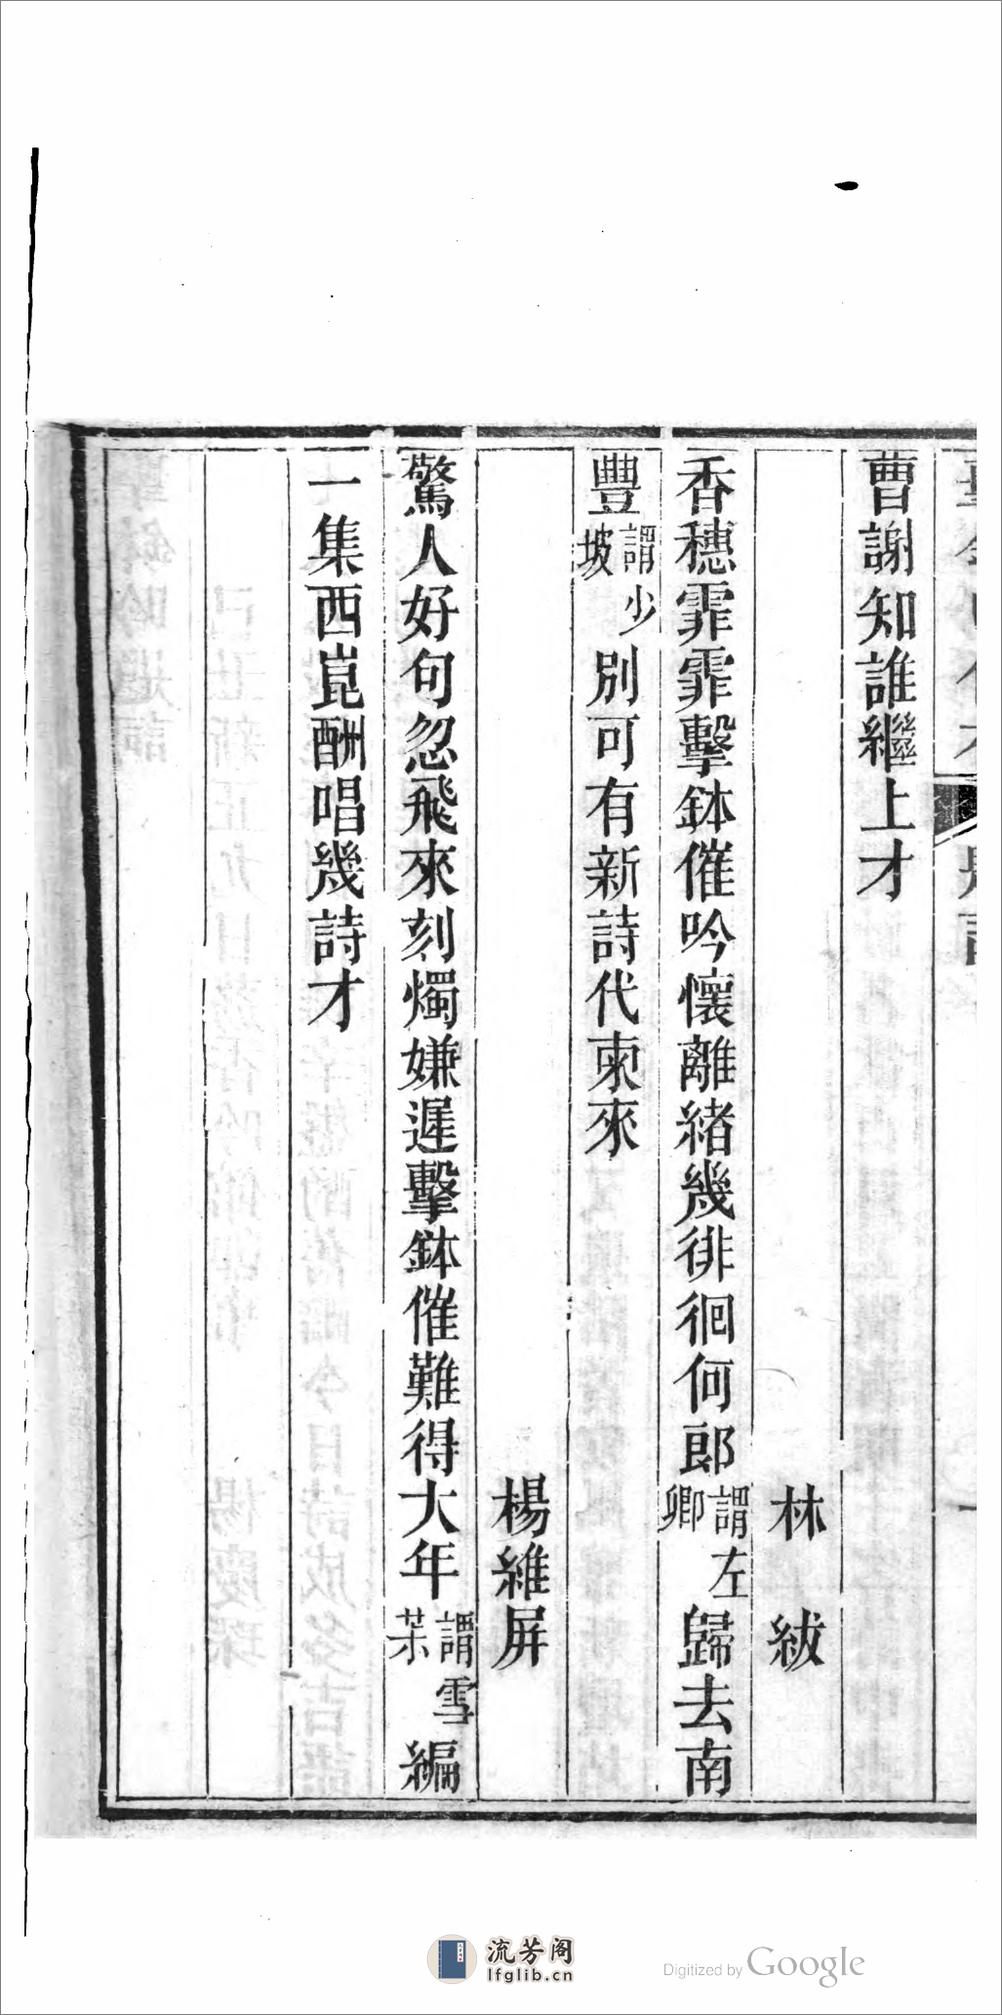 曹謝知誰繼上才
林紱
香穗霏霏擊鉢催吟懷離緒幾徘徊何郎謂左卿歸去南
豐謂少坡別可有新詩代柬來
楊維屏
驚人好句忽飛來刻燭嫌遲擊鉢催難得大年謂雪茮編
一集西崑酬唱幾詩才
流芳阁
lfglib.cn
Digitized by Google